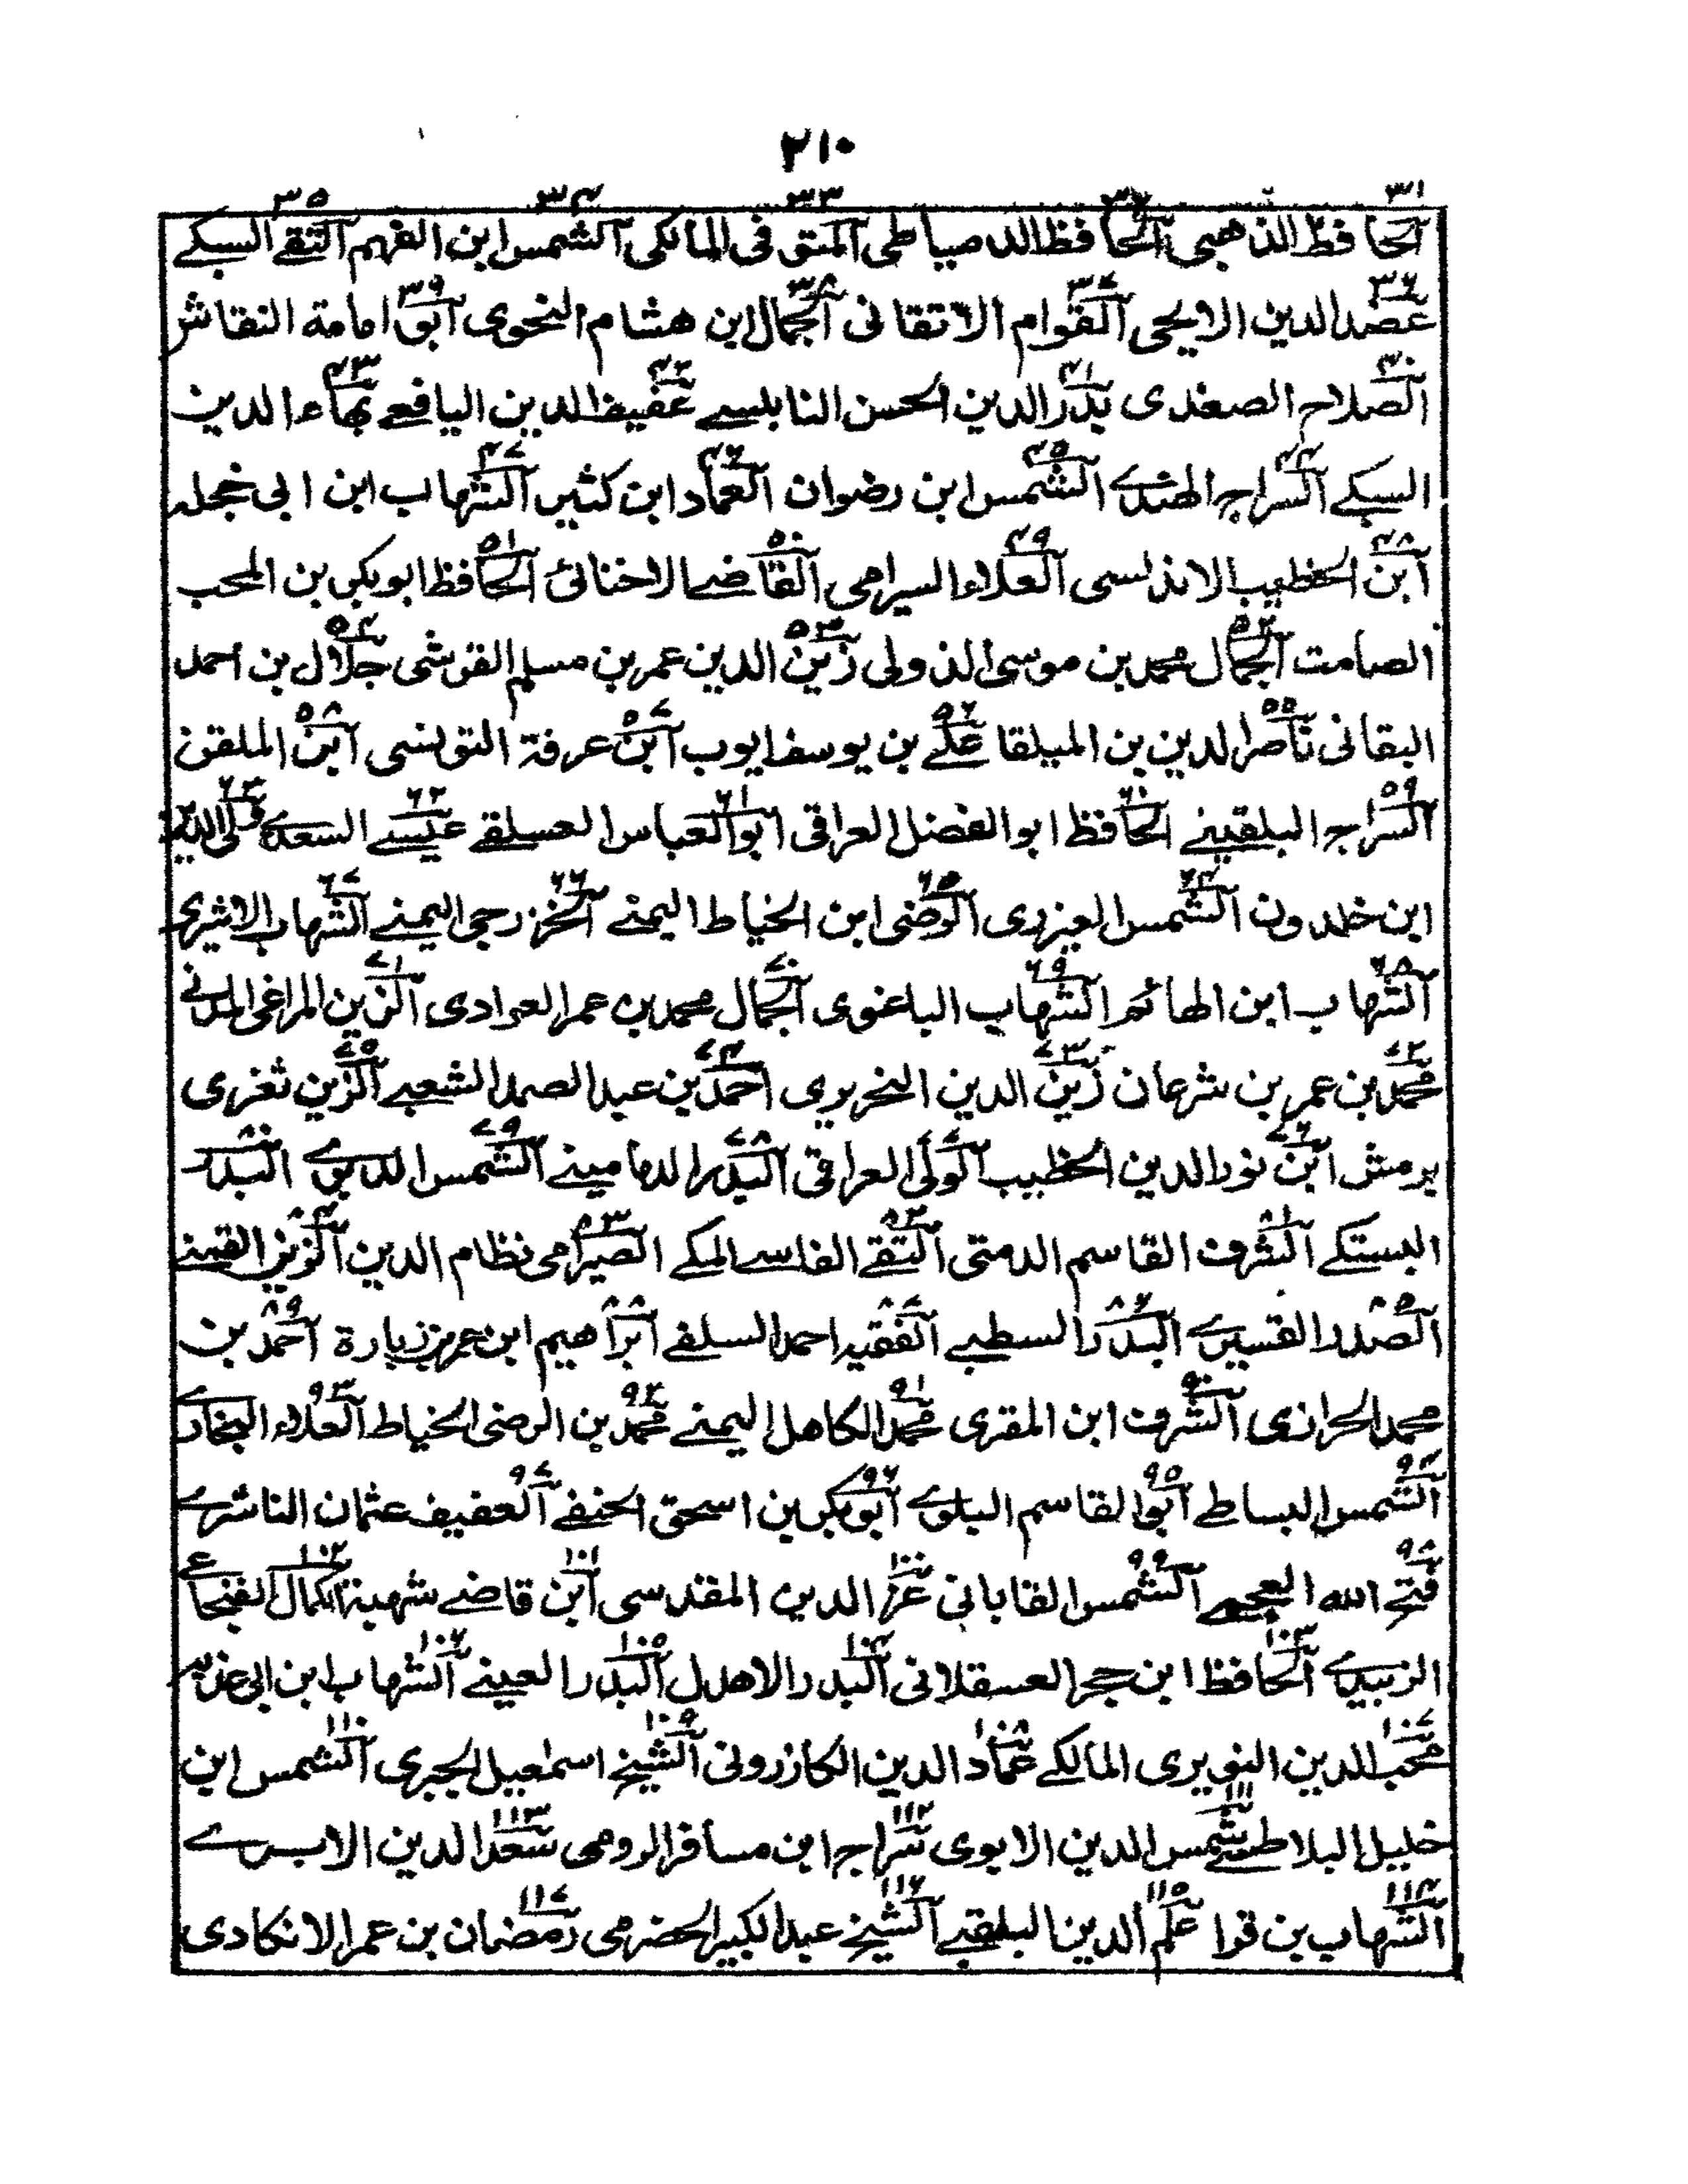 ۲۱۰
۳۱ ۳۲ ۳۳ ۳۴ ۳۵
الحافظ الذهبی الحافظ الدمیاطی المتوفی المالکی الشمس ابن الفهم التقے السبکے
۳۶ ۳۷ ۳۸ ۳۹
عضد الدین الایجی القوام الاتقانی الجمال ابن هشام النحوی ابو امامة النقاش
۴۰ ۴۱ ۴۲ ۴۳
الصلاح الصغدی بدر الدین الحسن النابلسے عفیف الدین الیافعے بهاء الدین
۴۴ ۴۵ ۴۶ ۴۷
السبکے السراج الهندے الشمس ابن رضوان العماد ابن کثیر الشهاب ابن ابی حجله
۴۸ ۴۹ ۵۰ ۵۱
ابن الخطیب الاندلسی العلاء السیرامی القاضے الاخنائی الحافظ ابوبکر بن المحب
۵۲ ۵۳ ۵۴
الصامت الجمال محمد بن موسی الذولی زین الدین عمر بن مسلم القرشی جلال بن احمد
۵۵ ۵۶ ۵۷ ۵۸
البقانی ناصر الدین بن المیلقا علے بن یوسف ایوب ابن عرفة التونسی ابن الملقن
۵۹ ۶۰ ۶۱ ۶۲ ۶۳
السراج البلقینے الحافظ ابو الفضل العراقی ابو العباس العسلقے عیسے السعدے ولی الدین
۶۴ ۶۵ ۶۶ ۶۷
ابن خلدون الشمس العیزری الرضی ابن الخیاط الیمنے الخزرجی الیمنے الشهاب الاشیری
۶۸ ۶۹ ۷۰ ۷۱
الشهاب ابن الهائم الشهاب الباغوی الجمال محمد بن عمر العوادی الزین المراغی المدنے
۷۲ ۷۳ ۷۴ ۷۵
محمد بن عمر بن شرعان زین الدین النحریری احمد بن عبد الصمد الشعبے الزین تغری
۷۶ ۷۷ ۷۸ ۷۹ ۸۰
برمش ابن نور الدین الخطیب الولی العراقی البدر الدمامینے الشمس الدیری البدر
۸۱ ۸۲ ۸۳ ۸۴
البستکے الشرف القاسم الدمتی التقے الفاسے المکے الصیرامی نظام الدین الزین القمنے
۸۵ ۸۶ ۸۷ ۸۸ ۸۹
الصدر القسیرے البدر السطبے الفقیه احمد السلفے ابراهیم ابن عریز زیارة احمد بن
۹۰ ۹۱ ۹۲ ۹۳
محمد الحرازی الشرف ابن المقری محمد الکاهل الیمنے محمد بن الرضی الخیاط العلاء البخارے
۹۴ ۹۵ ۹۶ ۹۷
الشمس البساطے ابو القاسم البلوے ابوبکر بن اسحق الحنفے العفیف عثمان الناشرے
۹۸ ۹۹ ۱۰۰ ۱۰۱ ۱۰۲
فتح الله العجمے الشمس القایاتی عز الدین المقدسی ابن قاضے شهبة الکمال
۱۰۳ ۱۰۴ ۱۰۵ ۱۰۶
الزبیدے الحافظ ابن حجر العسقلانی البدر الاهدل البدر العینے الشهاب ابن ابی عذیبه
۱۰۷ ۱۰۸ ۱۰۹ ۱۱۰
محب الدین النویری المالکے عماد الدین الکازرونی الشیخ اسمعیل الجبری الشمس ابن
۱۱۱ ۱۱۲ ۱۱۳
خلیل البلاطنسے شمس الدین الابوی سراج ابن مسافر الرومی سعد الدین الابرے
۱۱۴ ۱۱۵ ۱۱۶ ۱۱۷
الشهاب بن قرا علم الدین البلقینے الشیخ عبد الکبیر الحضرمی رمضان بن عمر الانکادی